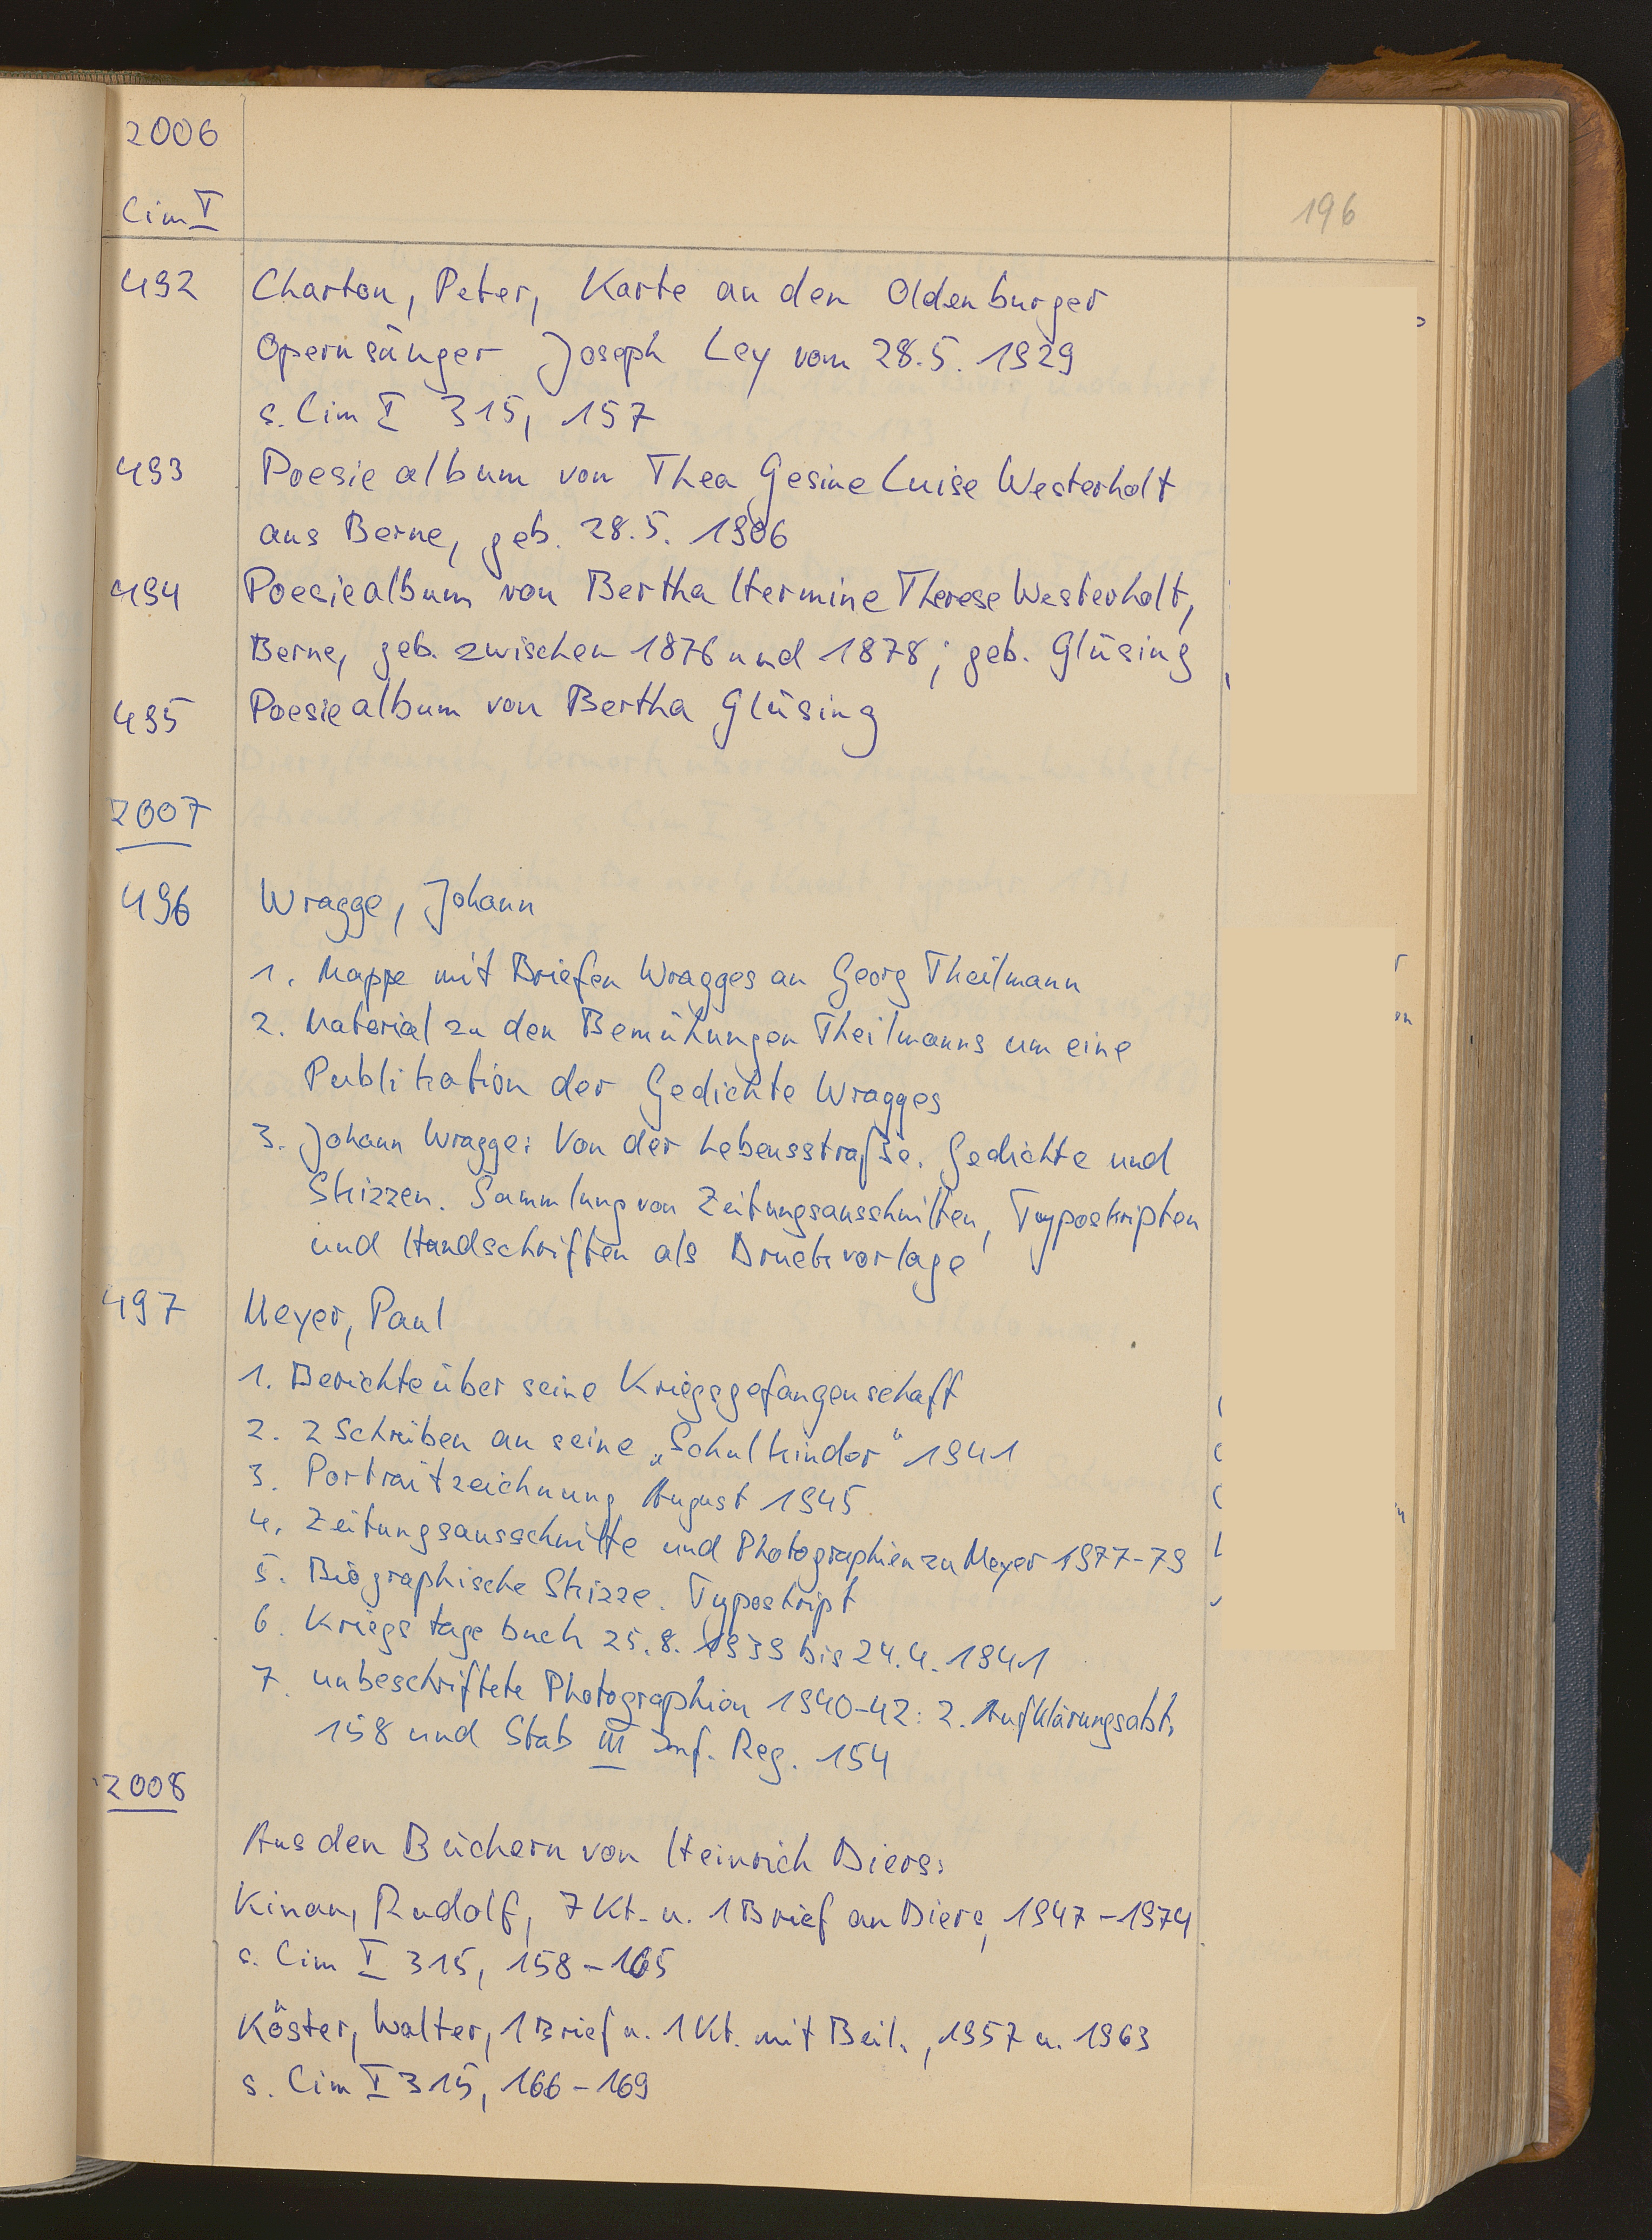 2006
Cim I
196
492 Charton, Peter, Karte an den Oldenburger
Opernsänger Joseph Ley vom 28.5.1929
s. Cim I 315, 157
493 Poesiealbum von Thea Gesine Luise Westerholt
aus Berne, geb. 28.5.1906
494 Poesiealbum von Bertha Hermine Therese Westerholt,
Berne, geb. zwischen 1876 und 1878; geb. Glüsing
495 Poesiealbum von Bertha Glüsing
2007
496 Wragge, Johann
1. Mappe mit Briefen Wragges an Georg Theilmann
2. Material zu den Bemühungen Theilmanns um eine
Publikation der Gedichte Wragges
3. Johann Wragge: Von der Lebensstraße. Gedichte und
Skizzen. Sammlung von Zeitungsausschnitten, Typoskripten
und Handschriften als Druckvorlage
497 Meyer, Paul
1. Berichte über seine Kriegsgefangenschaft
2. 2 Schreiben an seine „Schulkinder“ 1941
3. Portraitzeichnung August 1945.
4. Zeitungsausschnitte und Photographien zu Meyer 1977-79
5. Biographische Skizze. Typoskript
6. Kriegstagebuch 25.8.1939 bis 24.4.1941
7. unbeschriftete Photographien 1940-42: 2. Aufklärungsabt.
158 und Stab III Inf. Reg. 154
2008
Aus den Büchern von Heinrich Diers:
Kinau, Rudolf, 7 Kt. u. 1 Brief an Diers, 1947-1974
s. Cim I 315, 158-165
Köster, Walter, 1 Brief u. 1 Kt. mit Beil., 1957 u. 1963
s. Cim I 315, 166-169